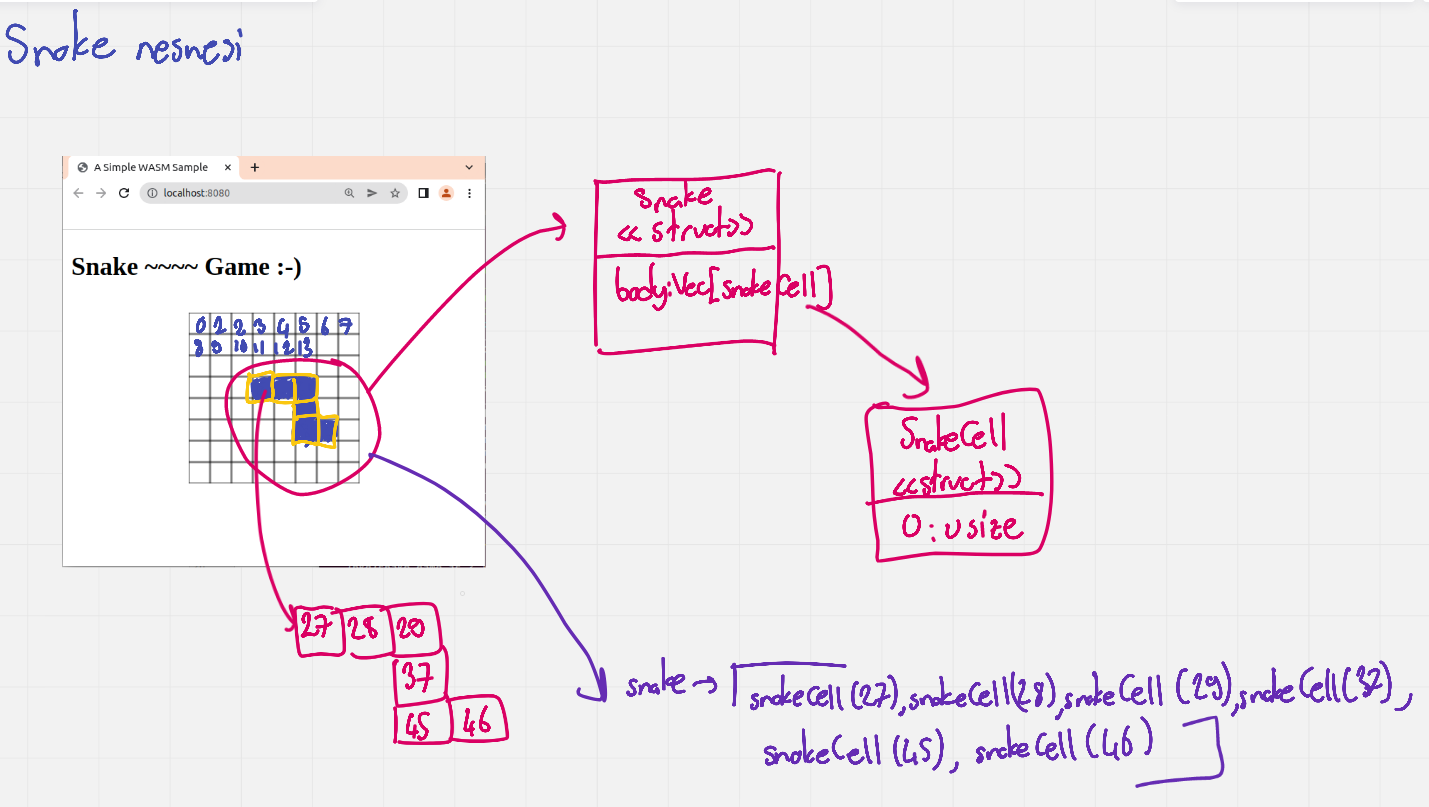 Snake nesnesi
A Simple WASM Sample
localhost:8080
Snake ~~~~ Game :-)
0 1 2 3 4 5 6 7
8 9 10 11 12 13
Snake
<< struct>>
body:Vec[snakeCell]
SnakeCell
<<struct>>
0:usize
27 28 20
37
45 46
snake → [snakeCell(27),snakeCell(28),snakeCell(29),snakeCell(32),
snakeCell(45), snakeCell(46)]